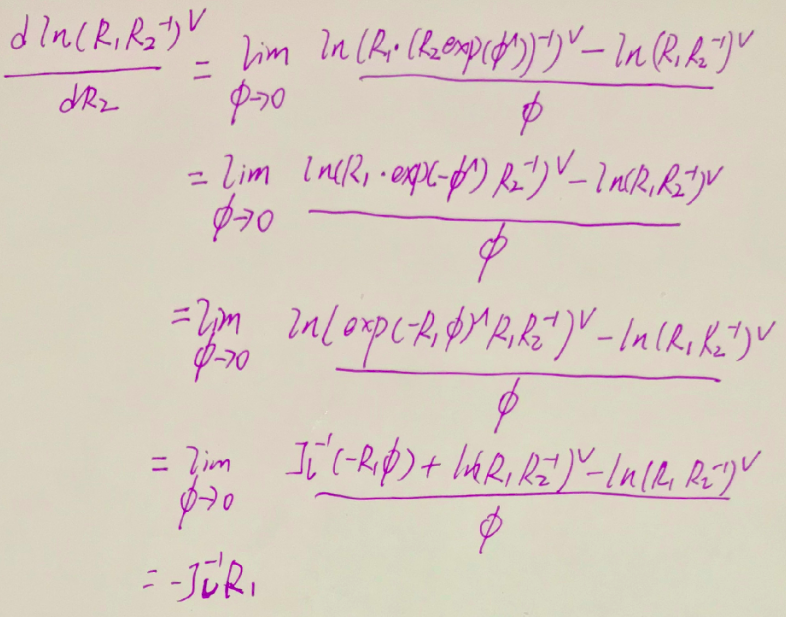 d ln(R₁R₂⁻¹)^∨ / dR₂ = lim_{ϕ→0} ln(R₁·(R₂exp(ϕ^∧))⁻¹)^∨ − ln(R₁R₂⁻¹)^∨ / ϕ
= lim_{ϕ→0} ln(R₁·exp(-ϕ^∧) R₂⁻¹)^∨ − ln(R₁R₂⁻¹)^∨ / ϕ
= lim_{ϕ→0} ln(exp(-R₁ϕ)^∧ R₁R₂⁻¹)^∨ − ln(R₁R₂⁻¹)^∨ / ϕ
= lim_{ϕ→0} J_l⁻¹(-R₁ϕ) + ln(R₁R₂⁻¹)^∨ − ln(R₁R₂⁻¹)^∨ / ϕ
= -J_l⁻¹R₁